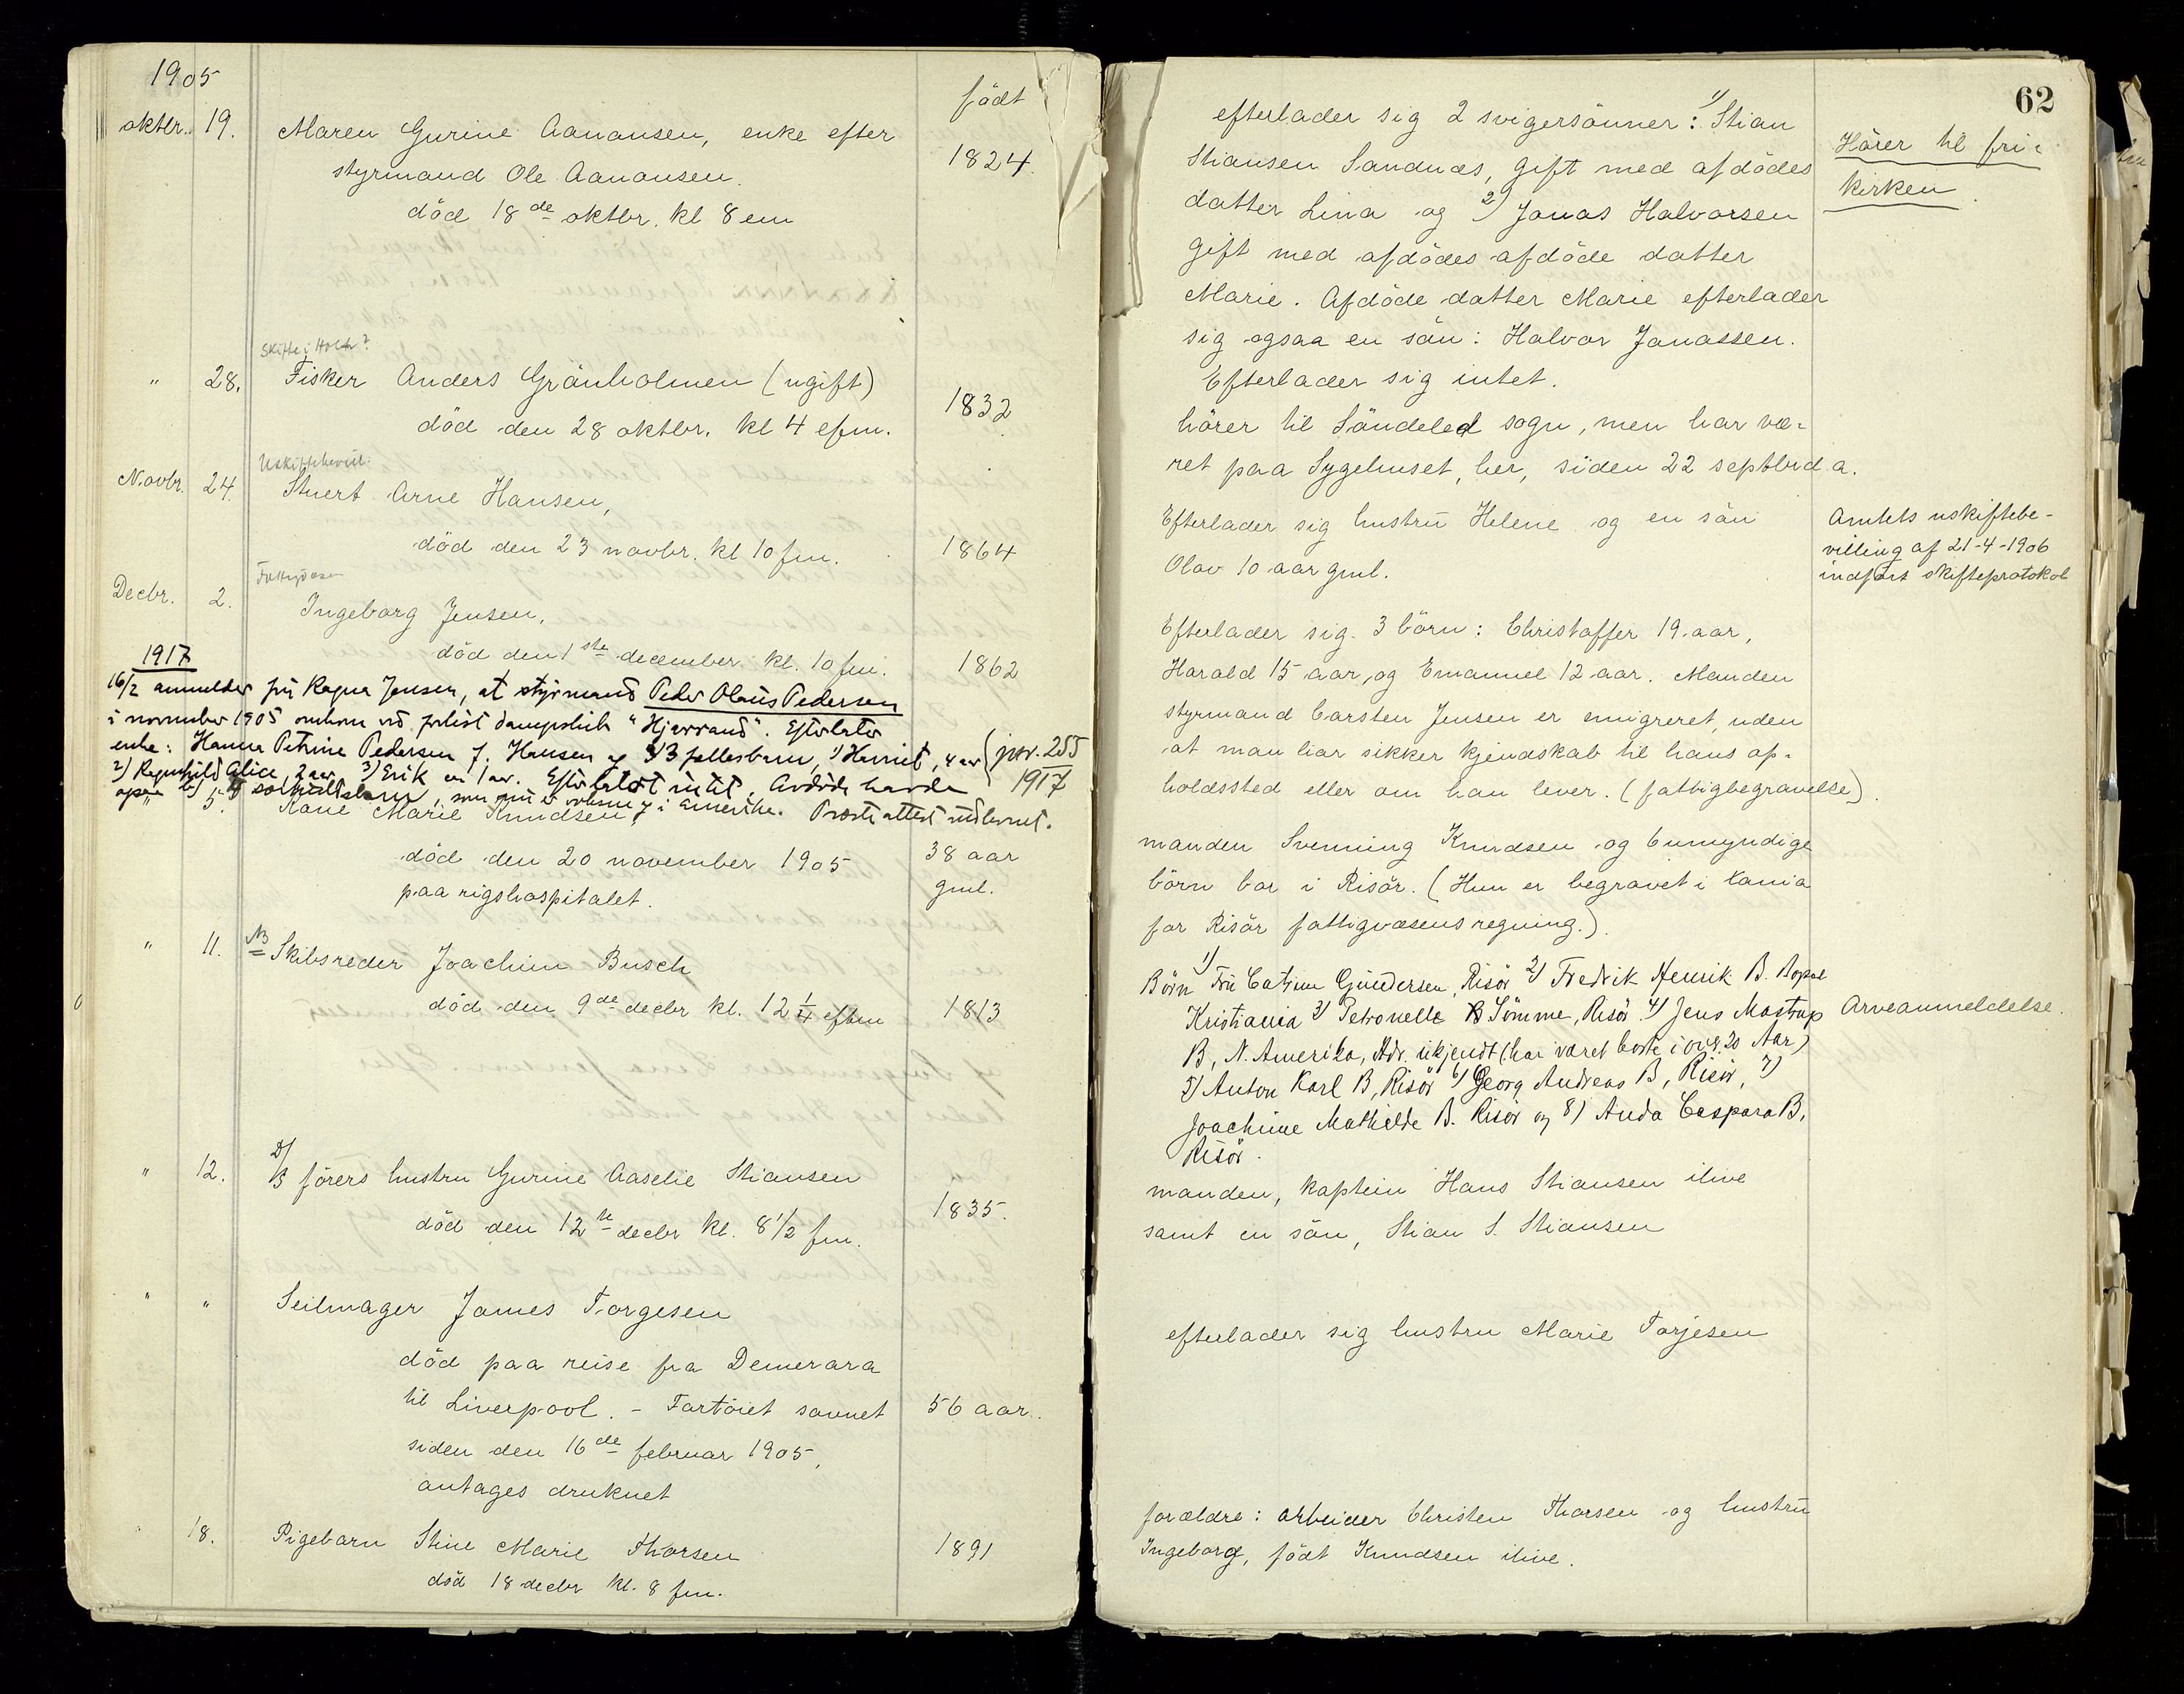 1905
født
oktbr. 19. Maren Gurine Aanonsen, enke efter
styrmand Ole Aanonsen.
1824.
död 18de oktbr. kl 8 em
Skifte i Holt?
" 28. Fisker Anders Grönholmen (ugift)
1832
död den 28 oktbr. kl 4 efm.
Uskiftebevill.
Novbr. 24. Stuert Arne Hansen,
död den 23 novbr. kl 10 fm.
1864
Decbr. 2. Ingeborg Jensen,
död den 1ste december kl. 10 fm.
1862
1917
16/2 anmelder frú Ragna Jensen, at styrmand Peder Olaüs Pedersen
i november 1905 omkom ved forlist dampskib "Hjarrand". Efterlater
enke: Hanna Petrine Pedersen f. Hansen og 3 fællesbarn, 1) Harriet, 4 aar
2) Ragnhild Alice, 2 aar 3) Erik 1 aar. Efterlatt intet. Avdöde havde
i Amerika. Presteattest
jnr. 255
1917
" 5. Karie Marie Knudsen,
död den 20 november 1905
38 aar
gml.
paa rigshospitalet.
" 11. NB Skibsreder Joachim Busch
död den 9de decbr kl. 12 1/4 eftm
1813
" 12. D/B förers hustru Gurine Aaselie Stiansen
1835.
död den 12te decbr kl. 8 1/2 fm.
" " Seilmager James Torgesen
död paa reise fra Demerara
til Liverpool. - Fartöiet savnet
56 aar.
siden den 16de februar 1905,
antages druknet
" 18. Pigebarn Stine Marie Thorsen
1891
död 18 decbr kl. 8 fm.
62
efterlader sig 2 svigersönner: 1) Stian
Stiansen Sandnæs, gift med afdödes
datter Lina og 2) Jonas Halvorsen
gift med afdödes afdöde datter
Marie. Afdöde datter Marie efterlader
sig ogsaa en sön: Halvor Jonassen.
Hörer til fri-
kirken
Efterlader sig intet.
hörer til Söndeled sogn, men har væ-
ret paa Sygehuset, her, siden 22 septbr d.a.
Efterlader sig hustru Helene og en sön
Olav 10 aar gml.
Amtets uskiftebe-
villing af 21-4-1906
indfört skifteprotokol
Efterlader sig 3 börn: Christoffer 19 aar,
Harald 15 aar, og Emanuel 12 aar. Manden
styrmand Carsten Jensen er emigreret, uden
at man har sikker kjendskab til hans op-
holdssted eller om han lever. (fattigbegravelse).
manden Svenning Knudsen og 6 umyndige
börn bor i Risör. (Hun er begravet i Kania
for Risör fattigvæsens regning.).
Börn 1) Frü Catrine Gündersen, Risör 2) Fredrik Henrik B.
Kristiania 3) Petronelle B Sömme, Risör 4) Jens Mostrup
B, N. Amerika, Adr. ükjendt (har været borte i over 20 Aar)
5) Anton Karl B, Risör 6) Georg Andreas B, Risör, 7)
Joachime Mathilde B. Risör og 8) Anda Caspara B,
Risör.
Arveanmeldelse.
manden, kaptein Hans Stiansen ilive
samt en sön, Stian S. Stiansen
efterlader sig hustru Marie Torjesen
forældre: arbeider Christen Thorsen og hustru
Ingeborg, födt Knudsen ilive.